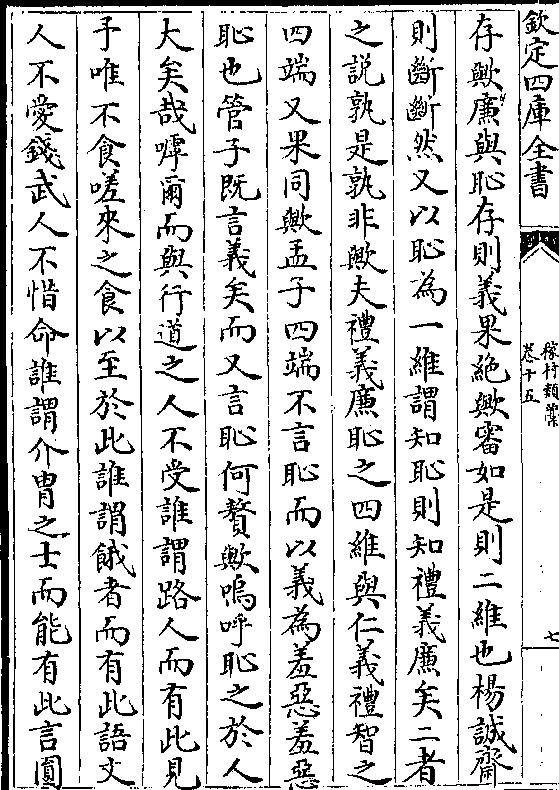 欽定四庫全書
稼村類藁
卷十五
七
存歟廉與恥存則義果絶歟審如是則二維也楊誠齋
則斷斷然又以恥為一維謂知恥則知禮義廉矣二者
之説孰是孰非歟夫禮義廉恥之四維與仁義禮智之
四端又果同歟孟子四端不言恥而以義為羞惡羞惡
恥也管子既言義矣而又言恥何贅歟嗚呼恥之於人
大矣哉嘑爾而與行道之人不受誰謂路人而有此見
予唯不食嗟來之食以至於此誰謂餓者而有此語文
人不愛錢武人不惜命誰謂介胄之士而能有此言圓